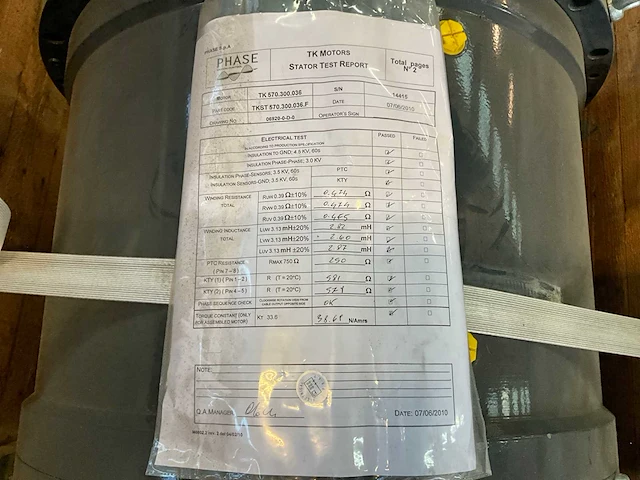 PHASE S.p.A
PHASE
TK MOTORS
STATOR TEST REPORT
Total pages
N° 2
MOTOR TK 570.300.036 S/N 14418
PART CODE TKST 570.300.036.F DATE 07/06/2010
DRAWING NO. 06920-0-D-0 OPERATOR'S SIGN
ELECTRICAL TEST PASSED FAILED
IN ACCORDING TO PRODUCTION SPECIFICATION
INSULATION TO GND; 4.5 KV, 60s
INSULATION PHASE-PHASE; 3.0 KV
INSULATION PHASE-SENSORS; 3.5 KV, 60s PTC
INSULATION SENSORS-GND; 3.5 KV, 60s KTY
WINDING RESISTANCE TOTAL
RUW 0.39 Ω±10% 0.424 Ω
RVW 0.39 Ω±10% 0.424 Ω
RUV 0.39 Ω±10% Ω
WINDING INDUCTANCE TOTAL
3.13 mH±20% 2.82 mH
LVW 3.13 mH±20% 2.60 mH
LUV 3.13 mH±20% 2.82 mH
PTC RESISTANCE (PIN 7–8) RMAX 750 Ω 250 Ω
KTY (1) (PIN 1–2) R (T=20°C) 581 Ω
KTY (2) (PIN 4–5) R (T=20°C) 579 Ω
PHASE SEQUENCE CHECK CLOCKWISE ROTATION VIEW FROM CABLE OUTPUT OPPOSITE SIDE OK
TORQUE CONSTANT (ONLY FOR ASSEMBLED MOTOR) KT 33.6 N/Amrs
NOTE:
Q.A.MANAGER DATE: 07/06/2010